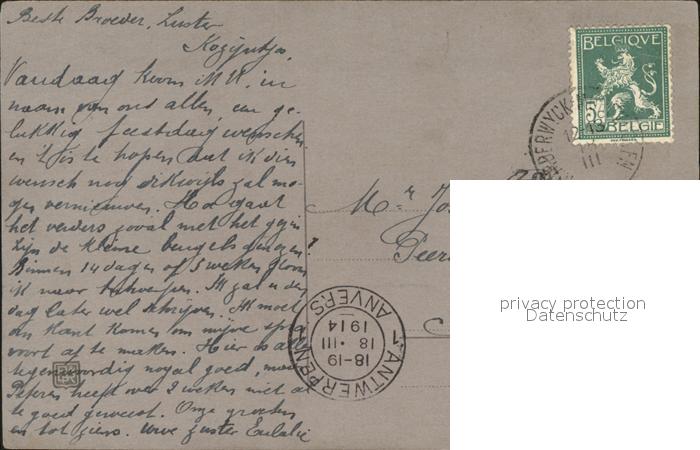 Beste Broeder, Zuster
Kozijntje,
Vandaag kom ik U, in
naam van ons allen, een ge-
lukkig feestdag wenschen
en 't is te hopen dat ik dien
wensch nog dikwijls zal mo-
gen vernieuwen. Hoe gaat
het verders zooal met het gezin
zijn de kleine bengels genezen?
Binnen 14 dagen of 3 weken kom
ik naar Antwerpen. Ik zal u den
dag later wel schrijven. Ik moet
om kant komen om mijne
voort af te maken. Hier is alles
tegenwoordig nogal goed, maar
Peteren heeft over 2 weken niet al
te goed geweest. Onze groeten
en tot ziens. Uwe zuster Eulalie
BELGIQUE
5c
BELGIË
III
Mr Jos
Peer
ANTWERPEN
18-19
18 · III
1914
ANVERS
privacy protection
Datenschutz